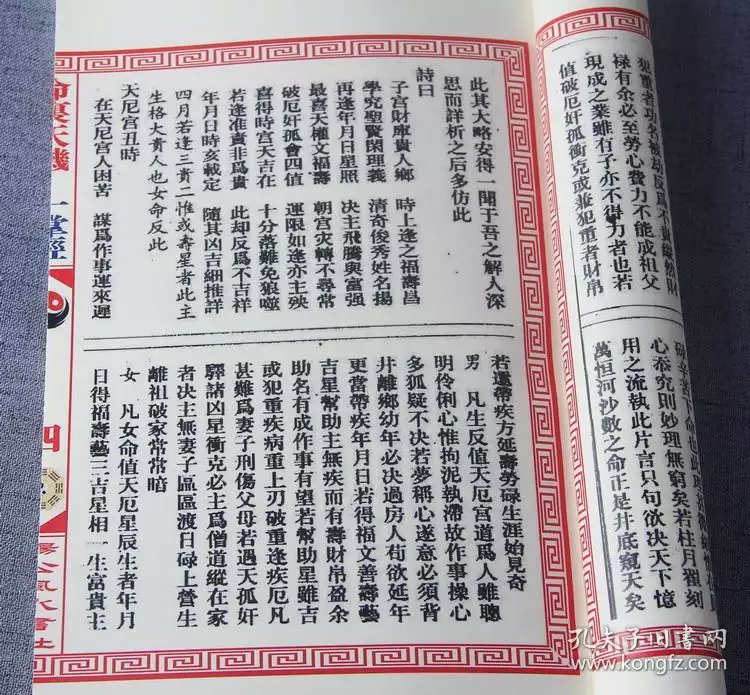 犯重者功名被劫反爲不貴縱然財
祿有余必至勞心費力不能成祖父
現成之業雖有子亦不得力者也若
值破厄奸孤衝克或兼犯重者財帛
碌辛苦下命也此
心忝究則妙理無窮矣若柱月翟刻
用之流執此片言只句欲決天下憶
萬恒河沙數之命正是井底窺天矣
此其大略安得一聞于吾之解人深
思而詳析之后多仿此
詩曰
子宮財庫貴人鄉 時上逢之福壽昌
學究聖賢閑理義 清奇俊秀姓名揚
再逢年月日星照 決主飛騰與富强
最喜天權文福壽 朝宮灾轉不尋常
破厄奸孤會四值 運限如逢亦主殃
喜得時宮天吉在 十分落難免狼噬
若逢准賣非爲貴 此却反爲不吉祥
年月日時亥載定 隨其凶吉細推詳
四月若逢三貴二惟或壽星者此主
生格大貴人也女命反此
天厄宮丑時
在天厄宮人困苦 謀爲作事運來遲
若還帶疾方延壽勞碌生涯始見奇
男 凡生反值天厄宮道爲人雖聰
明伶俐心惟拘泥執滯故作事操心
多狐疑不決若夢稱心遂意必須背
井離鄉幼年必決過房人苟欲延年
更當帶疾年月日若得福文善壽藝
吉星幫助主無疾而有壽財帛盈余
助名有成作事有望若幫助星雖吉
或犯重疾病重上刃破重逢疾厄凡
甚難爲妻子刑傷父母若過天孤奸
驛諸凶星衝克必主爲僧道縱在家
者決主無妻子區區渡日碌上營生
離祖破家常常暗
女 凡女命值天厄星辰生者年月
日得福壽藝三吉星相一生富貴主
命裏天機
一掌經
四
孔夫子旧书网
www.kongfz.com